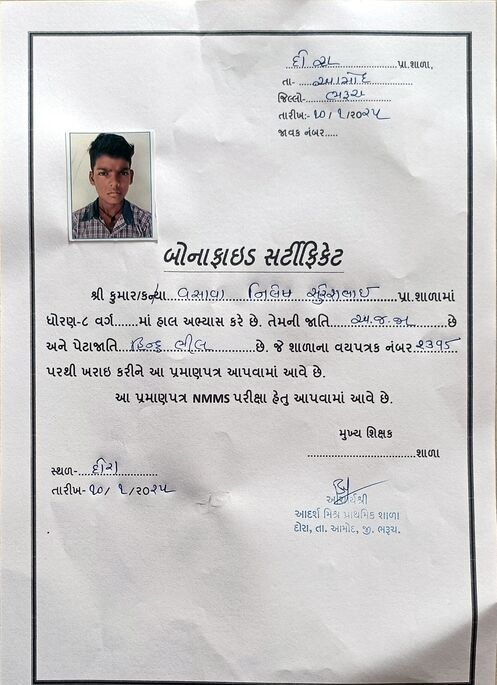 દોરા પ્રા.શાળા,
તા- આમોદ
જિલ્લો- ભરૂચ
તારીખ:- ૧૦/૧/૨૦૨૫
જાવક નંબર.....
બોનાફાઇડ સર્ટીફિકેટ
શ્રી કુમાર/કન્યા વસાવા નિલેષ સુરેશભાઇ પ્રા.શાળામાં
ધોરણ-૮ વર્ગ......માં હાલ અભ્યાસ કરે છે. તેમની જાતિ અ.જ.જા છે
અને પેટાજાતિ હિન્દુ ભીલ છે. જે શાળાના વયપત્રક નંબર ૨૩૧૫
પરથી ખરાઇ કરીને આ પ્રમાણપત્ર આપવામાં આવે છે.
આ પ્રમાણપત્ર NMMS પરીક્ષા હેતુ આપવામાં આવે છે.
મુખ્ય શિક્ષક
..............................શાળા
સ્થળ- દોરા
તારીખ- ૧૦/૧/૨૦૨૫
આચાર્યશ્રી
આદર્શ મિશ્ર પ્રાથમિક શાળા
દોરા, તા. આમોદ, જી. ભરૂચ.